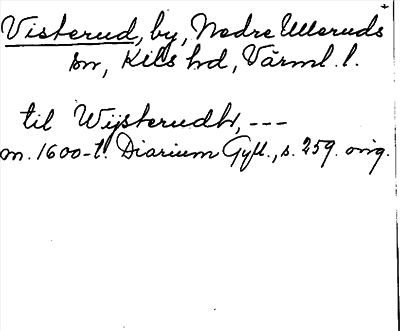 Visterud, by, Nedre Ulleruds
sn, Kils hd, Värml. l.
til Wijsterudh, ---
m. 1600-t. Diarium Gyll., s. 259. orig.